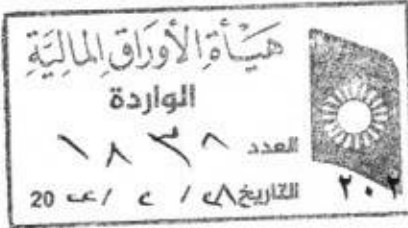 هيأة الأوراق المالية
الواردة
العدد ١٨٣٨
التاريخ ٢٨ / ٢ / 20
٢٠٢